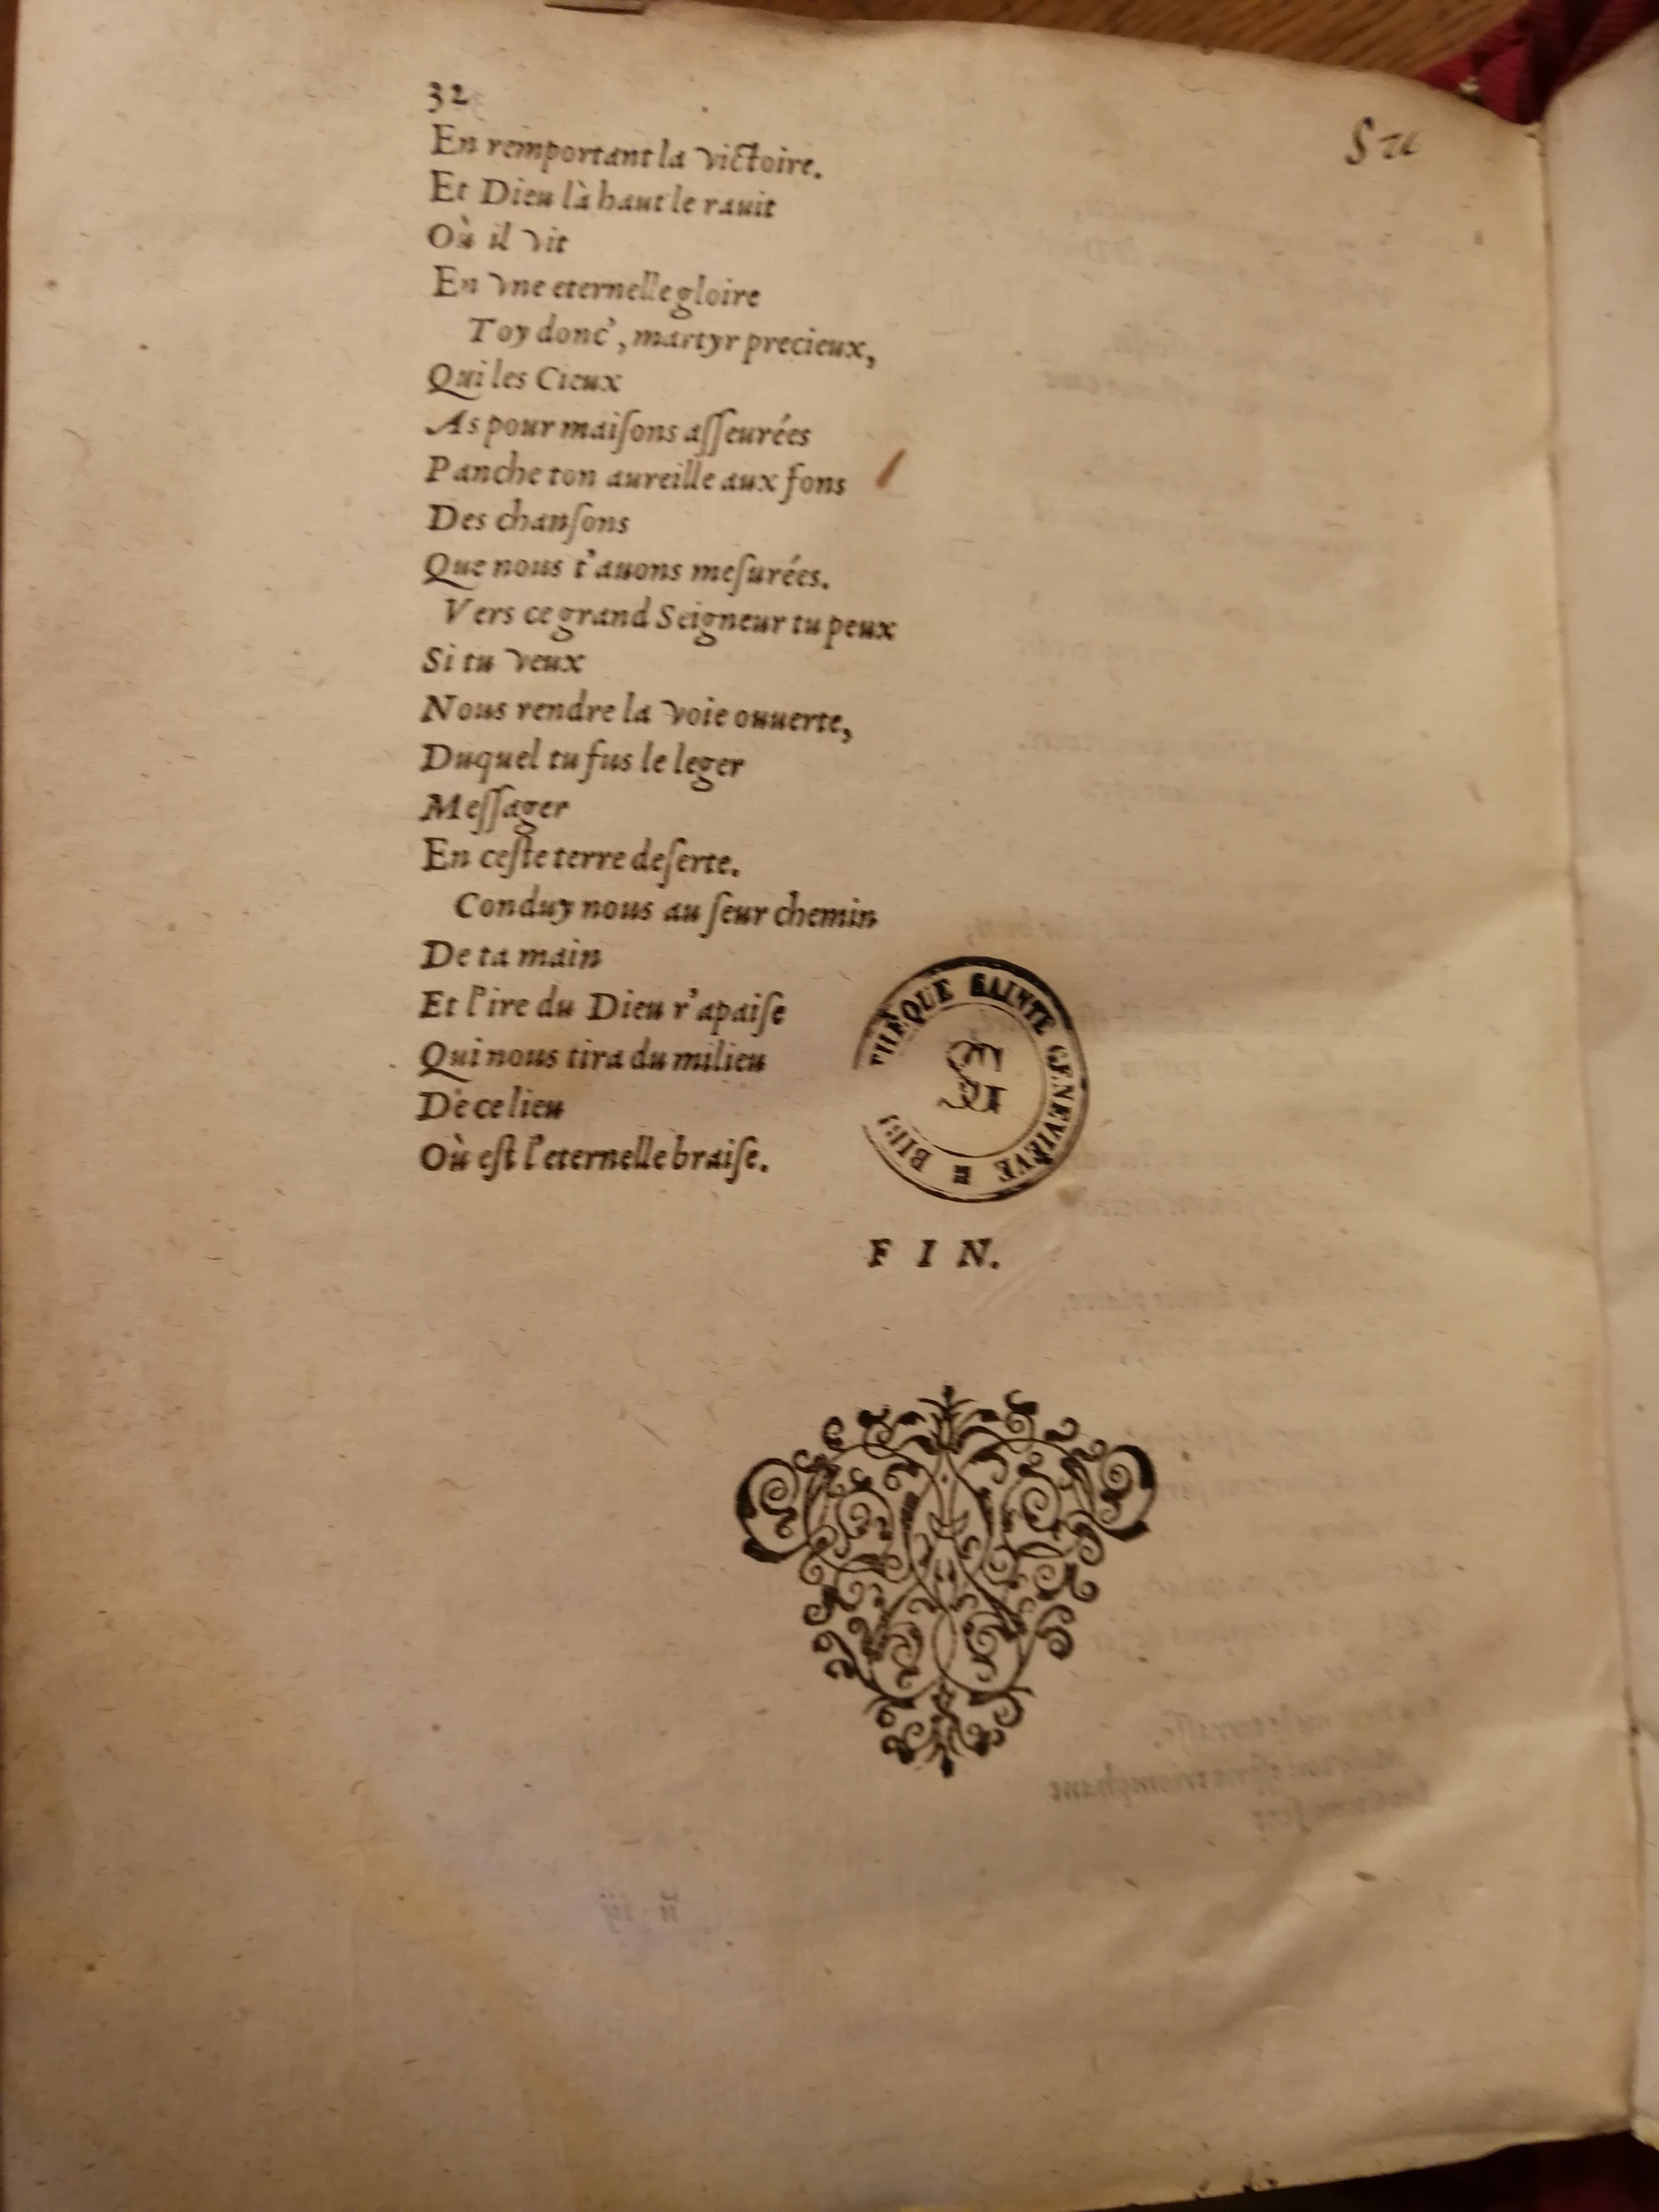 32
En remportant la victoire.
Et Dieu là haut le rauit
Où il vit
En vne eternelle gloire
Toy donc', martyr precieux,
Qui les Cieux
As pour maiſons aſſeurées
Panche ton aureille aux ſons
Des chanſons
Que nous t'auons meſurées.
Vers ce grand Seigneur tu peux
Si tu veux
Nous rendre la voie ouuerte,
Duquel tu fus le leger
Meſſager
En ceſte terre deſerte.
Conduy nous au ſeur chemin
De ta main
Et l'ire du Dieu r'apaiſe
Qui nous tira du milieu
De ce lieu
Où eſt l'eternelle braiſe.
THÈQUE SAINTE GENEVIÈVE
FIN.